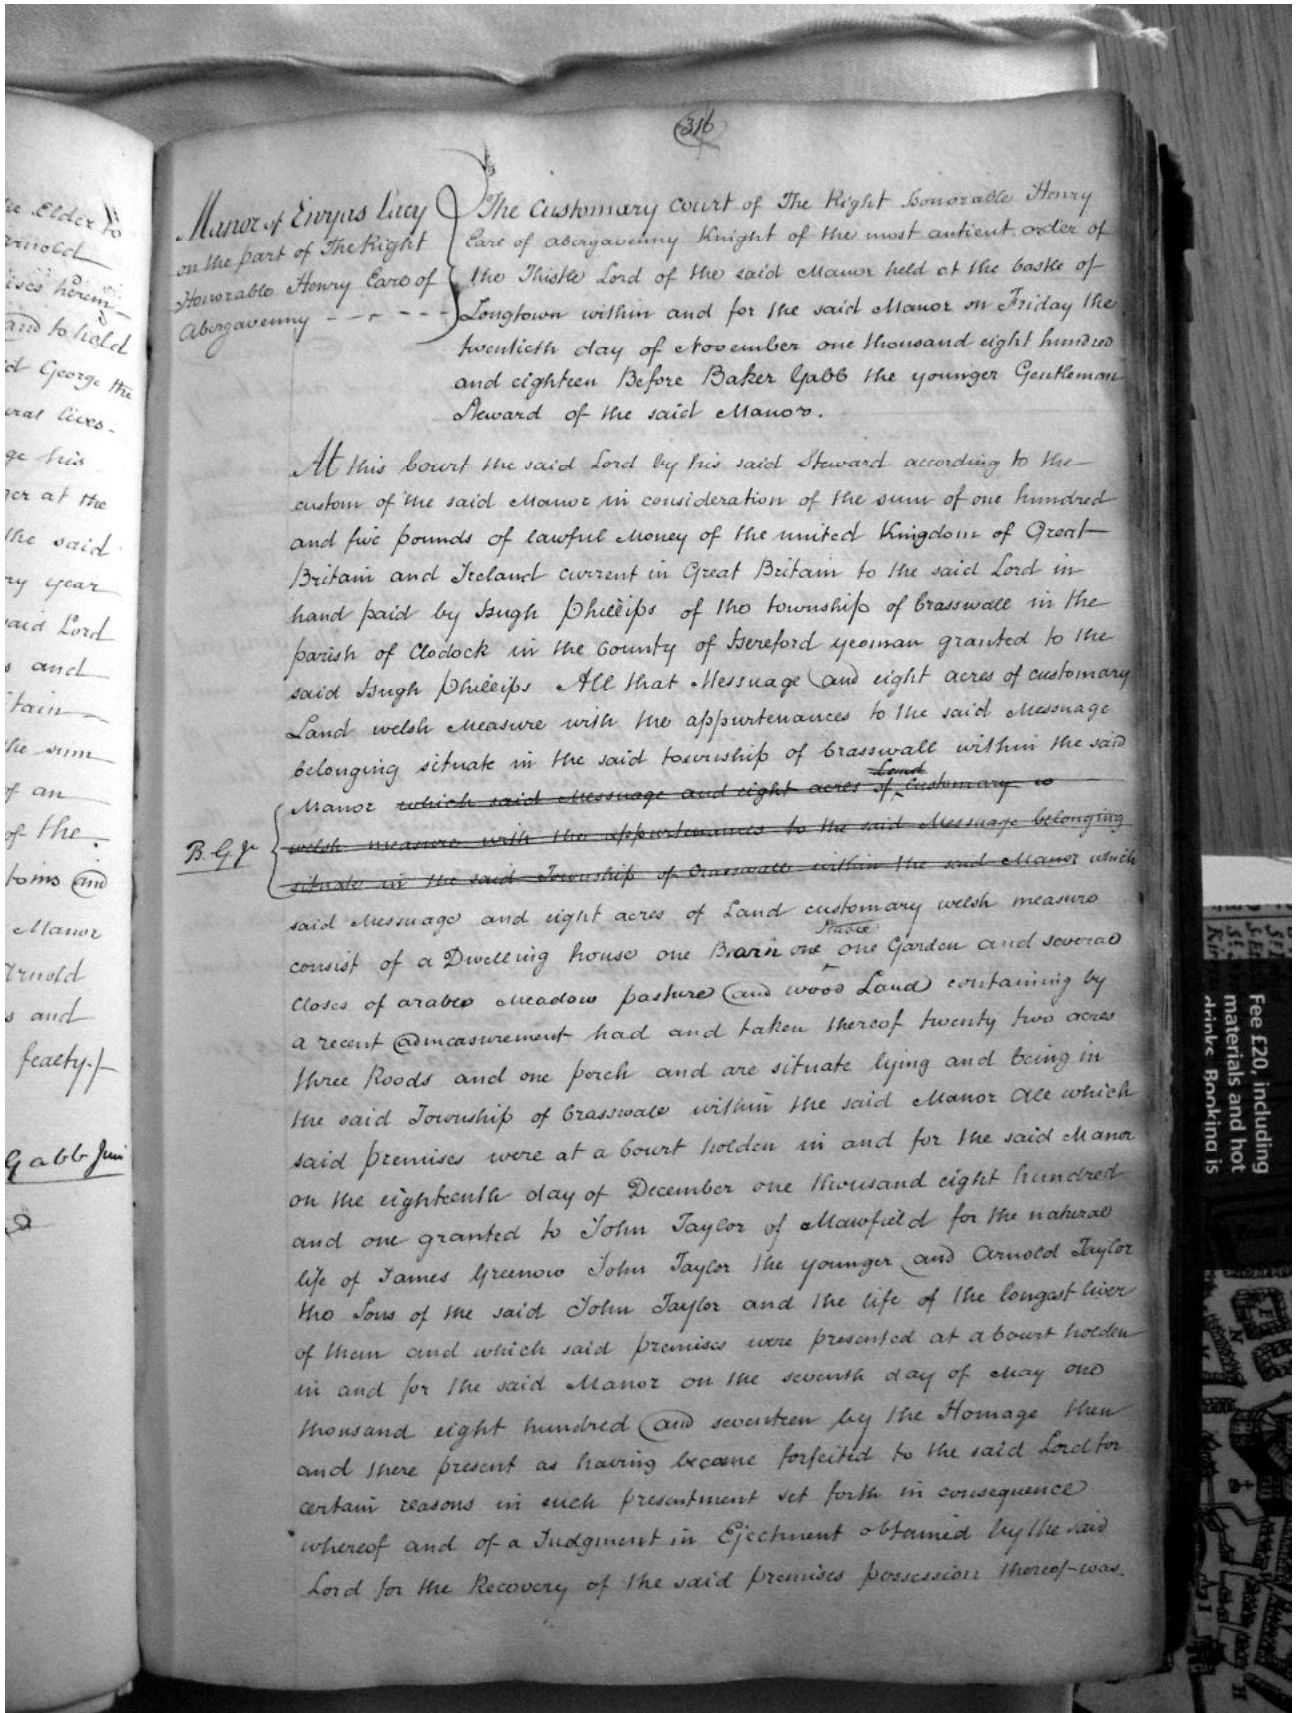 he Elder to
arnold
ises herein
and to hold
d George the
eral lives
ge his
ger at the
the said
ry year
said Lord
s and
itain
he sum
of an
of the
toms and
Manor
Arnold
s and
fealty
Gabb Jun
316
Manor of Ewyas Lacy
on the part of The Right
Honorable Henry Earl of
Abergavenny
The Customary Court of The Right Honorable Henry
Earl of abergavenny Knight of the most antient order of
the Thistle Lord of the said Manor held at the Castle of
Longtown within and for the said Manor on Friday the
twentieth day of November one thousand eight hundred
and eighteen Before Baker Gabb the younger Gentleman
Steward of the said Manor.
At this Court the said Lord by his said Steward according to the
custom of the said Manor in consideration of the sum of one hundred
and five pounds of lawful Money of the united Kingdom of Great
Britain and Ireland current in Great Britain to the said Lord in
hand paid by Hugh Phillips of the township of Crasswall in the
parish of Clodock in the County of Hereford yeoman granted to the
said Hugh Phillips All that Messuage and eight acres of customary
Land welsh Measure with the appurtenances to the said Messuage
belonging situate in the said township of Crasswall within the said
Land
Manor which said Messuage and eight acres of customary
B. G Jr
welsh measure with the appurtenances to the said Messuage belonging
situate in the said Township of Crasswall within the said Manor which
said Messuage and eight acres of Land customary welsh measure
Stable
consist of a Dwelling house one Barn one one Garden and several
Closes of arable Meadow pasture and wood Land containing by
a recent admeasurement had and taken thereof twenty two acres
three Roods and one perch and are situate lying and being in
the said Township of Crasswall within the said Manor All which
said premises were at a Court holden in and for the said Manor
on the eighteenth day of December one thousand eight hundred
and one granted to John Taylor of Mawfield for the natural
life of James Greenow John Taylor the younger and Arnold Taylor
the Sons of the said John Taylor and the life of the longest liver
of them and which said premises were presented at a Court holden
in and for the said Manor on the seventh day of May one
thousand eight hundred and seventeen by the Homage then
and there present as having become forfeited to the said Lord for
certain reasons in such presentment set forth in consequence
whereof and of a Judgment in Ejectment obtained by the said
Lord for the Recovery of the said premises possession thereof was
Fee £20, including
materials and hot
drinks. Booking is